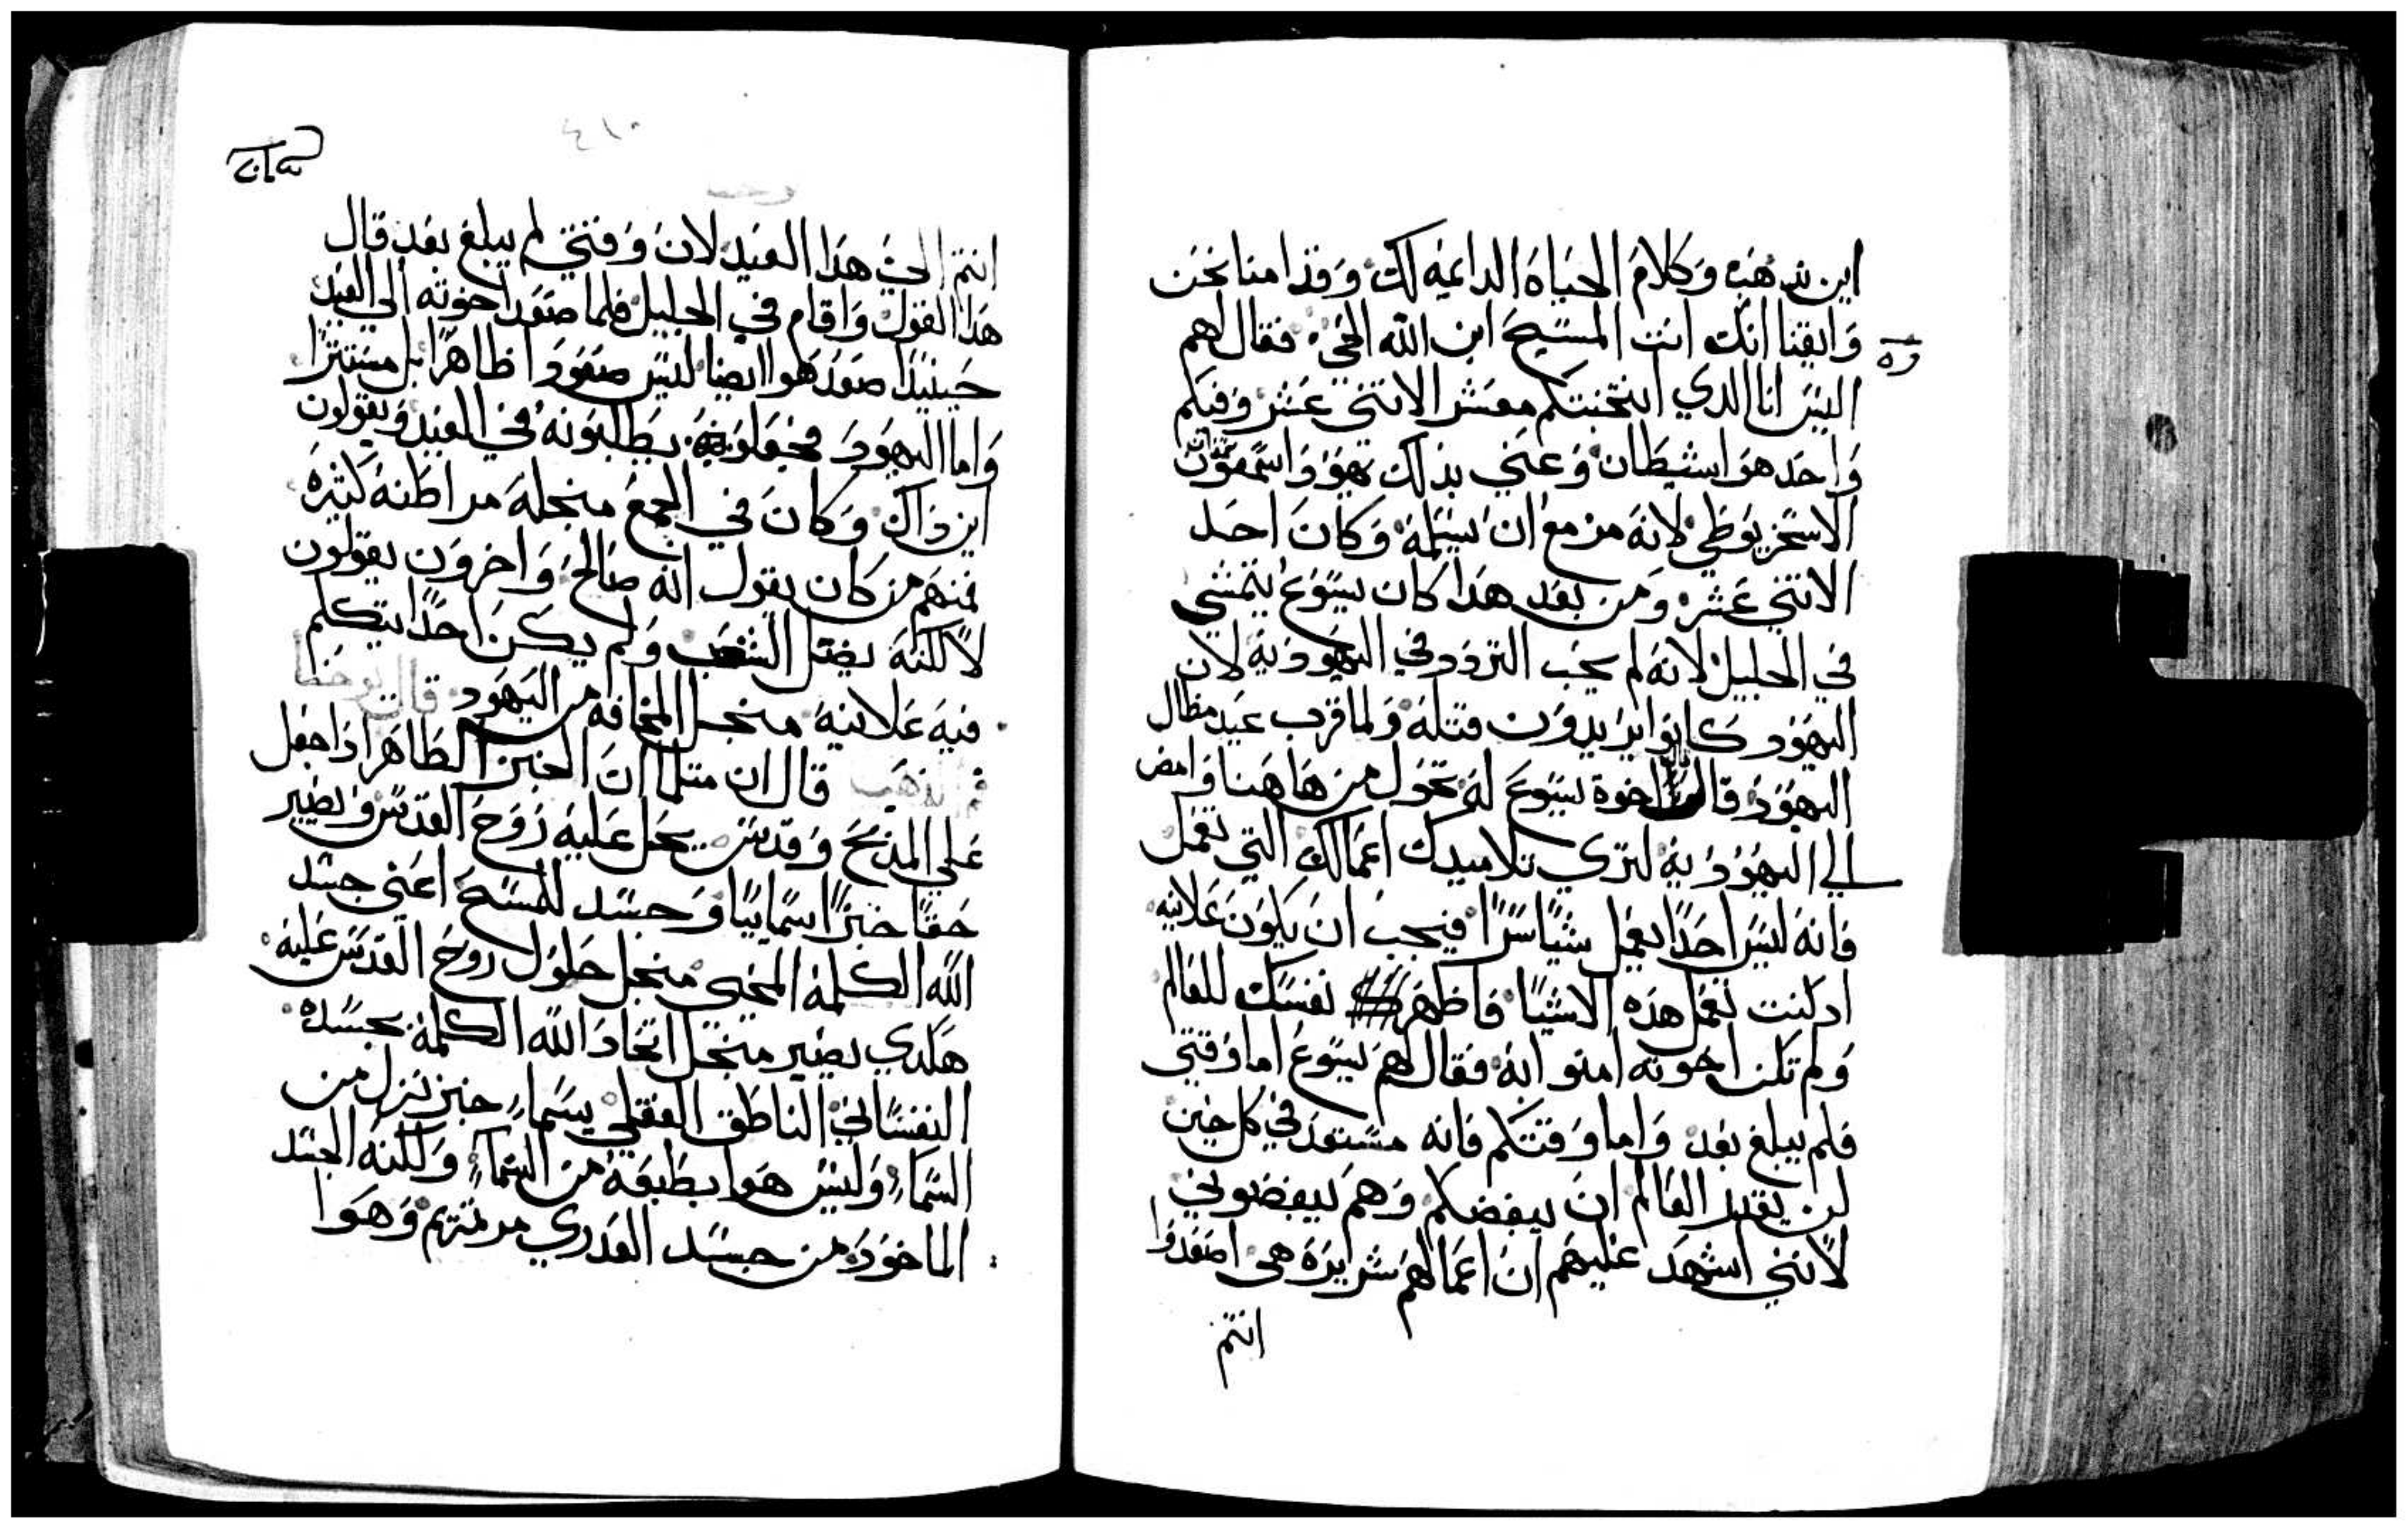 اين نذهب وكلام الحياة الدايمه لك وقد امنا نحن
وايقنا انك انت المسيح ابن الله الحي فقال لهم
اليس انا الدي انتخبتكم معشر الاتني عشر وفيكم
واحد هو اشيطان وعني بذلك يهودا سمعون
الاسخريوطي لانه مزمع ان يسلمه وكان احد
الاتني عشر ومن بعد هدا كان يسوع يتمشي
في الجليل لانه لم يحب التردد في اليهوديه لان
اليهود كانوا يريدون قتله ولما قرب عيد مظال
اليهود قال اخوة يسوع له تحول من هاهنا وامض
الي اليهوديه لتري تلاميدك اعمالك التي تعمل
فانه ليس احدا يعمل شيا سرا فيجب ان يكون علانيه
اد كنت تعمل هذه الاشيا فاظهر نفسك للعالم
ولم تكن اخوته امنو ابه فقال لهم يسوع اما وقتي
فلم يبلغ بعد واما وقتكم فانه مستعد في كل حين
لن يقدر العالم ان يبغضكم وهم يبغضوني
لانني اشهد عليهم ان اعمالهم شريرة هي اصعدوا
انتم
انتم الي هدا العيد لان وقتي لم يبلغ بعد قال
هدا القول واقام في الجليل فلما صعد اخوته الي العيد
حينيدا صعد هوا ايضا ليس صعودا ظاهرا بل مستترا
واما اليهود يطلبونه في العيد ويقولون
اين داك وكان في الجمع منجله مراطنه كتيره
فمنهم من كان يقول انه صالح واخرون يقولون
لا لكنه يضل الشعب ولم يكن احدا يتكلم
فيه علانيه منجل المخافه من اليهود قال يوحنا
فم الذهب قال ان متلما ان الخبز الظاهر ادا جعل
علي المدبح وقدس يحل عليه روح القدس ويصير
حقا خبزا سمايبا وجسد للمسيح اعني جسد
الله الكلمة المحي منجل حلول روح القدس عليه
هكدي يصير منجل اتحاد الله الكلمة بجسده
النفساني الناطق العقلي يسما خبز نزل من
السما وليس هوا بطبعه من السما ولكنه الجسد
الماخود من جسد العدري مرتمريم وهوا